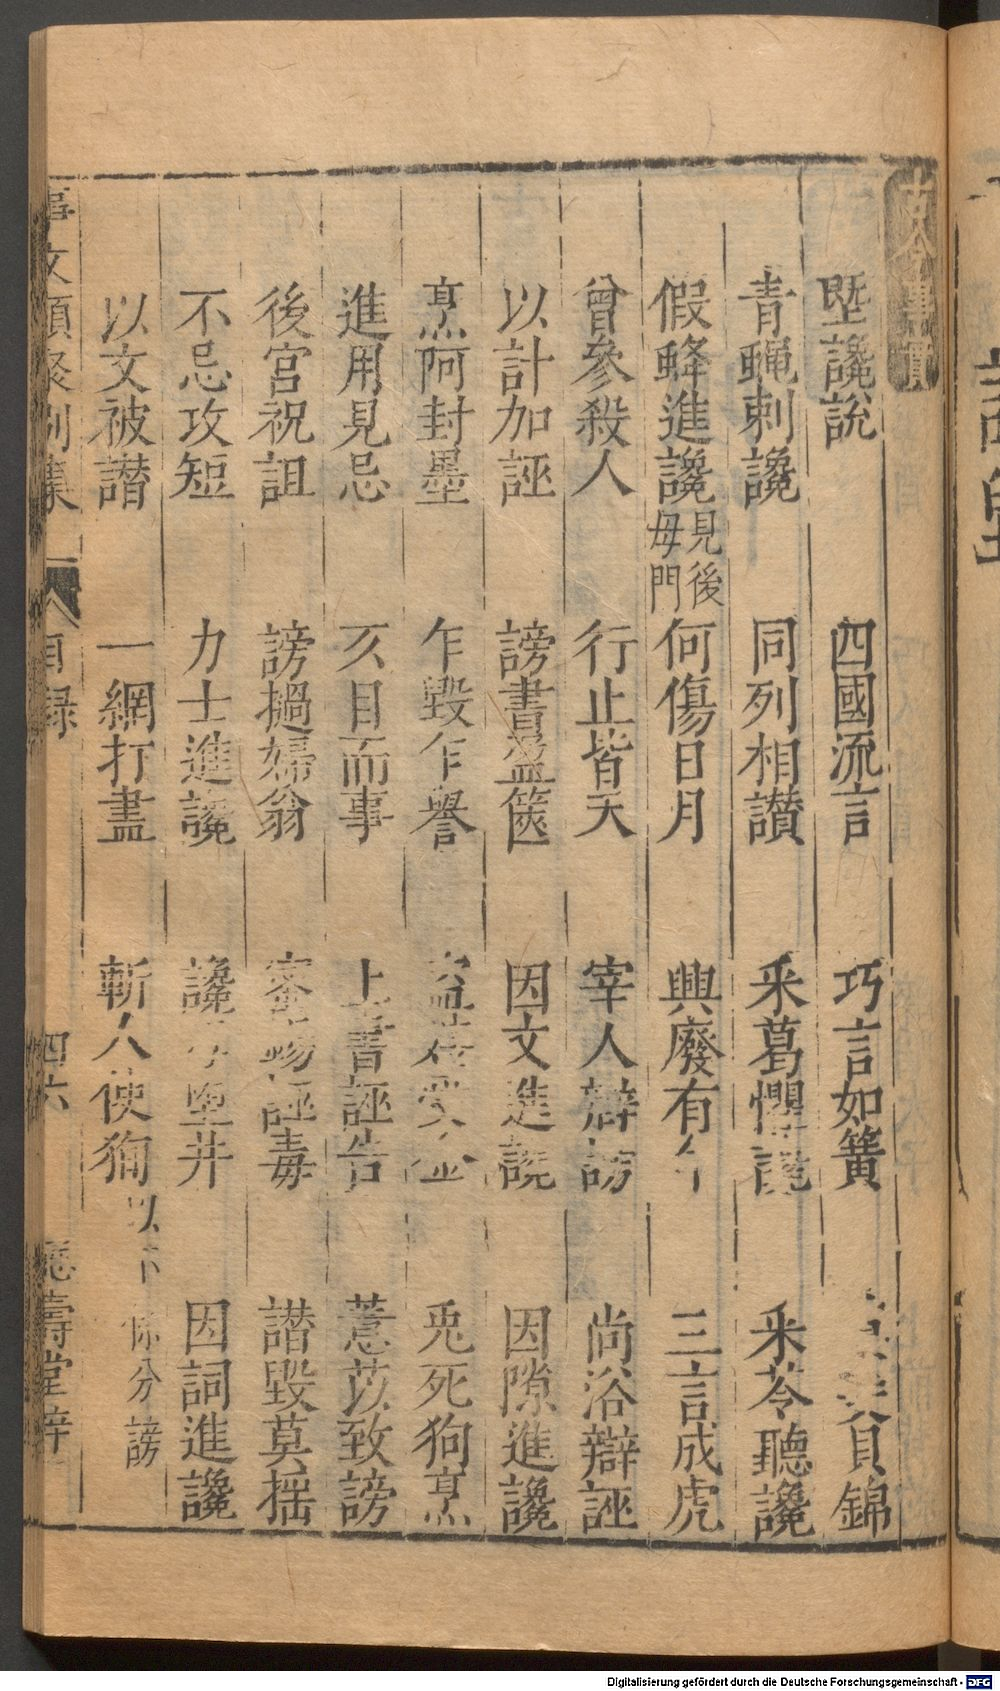 古今事實
堲讒說 四國流言 巧言如簧 貝錦
青蝿刺讒 同列相讃 采葛懼讒 采苓聽讒
假蜂進讒見後母門 何傷日月 興廢有 三言成虎
曾參殺人 行止皆天 宰人辯謗 尚浴辯誣
以計加誣 謗書盈篋 因文進讒 因隙進讒
烹阿封墨 乍毀乍譽 兎死狗烹
進用見忌 仄目而事 上書誣告 薏苡致謗
後宮祝詛 謗撾婦翁 誣毒 譖毀莫搖
不忌攻短 力士進讒 讒 墮井 因詞進讒
以文被譖 一網打盡 斬人使狥以下係分謗
事文類聚別集 目録 四六 壽堂梓
Digitalisierung gefördert durch die Deutsche Forschungsgemeinschaft - DFG